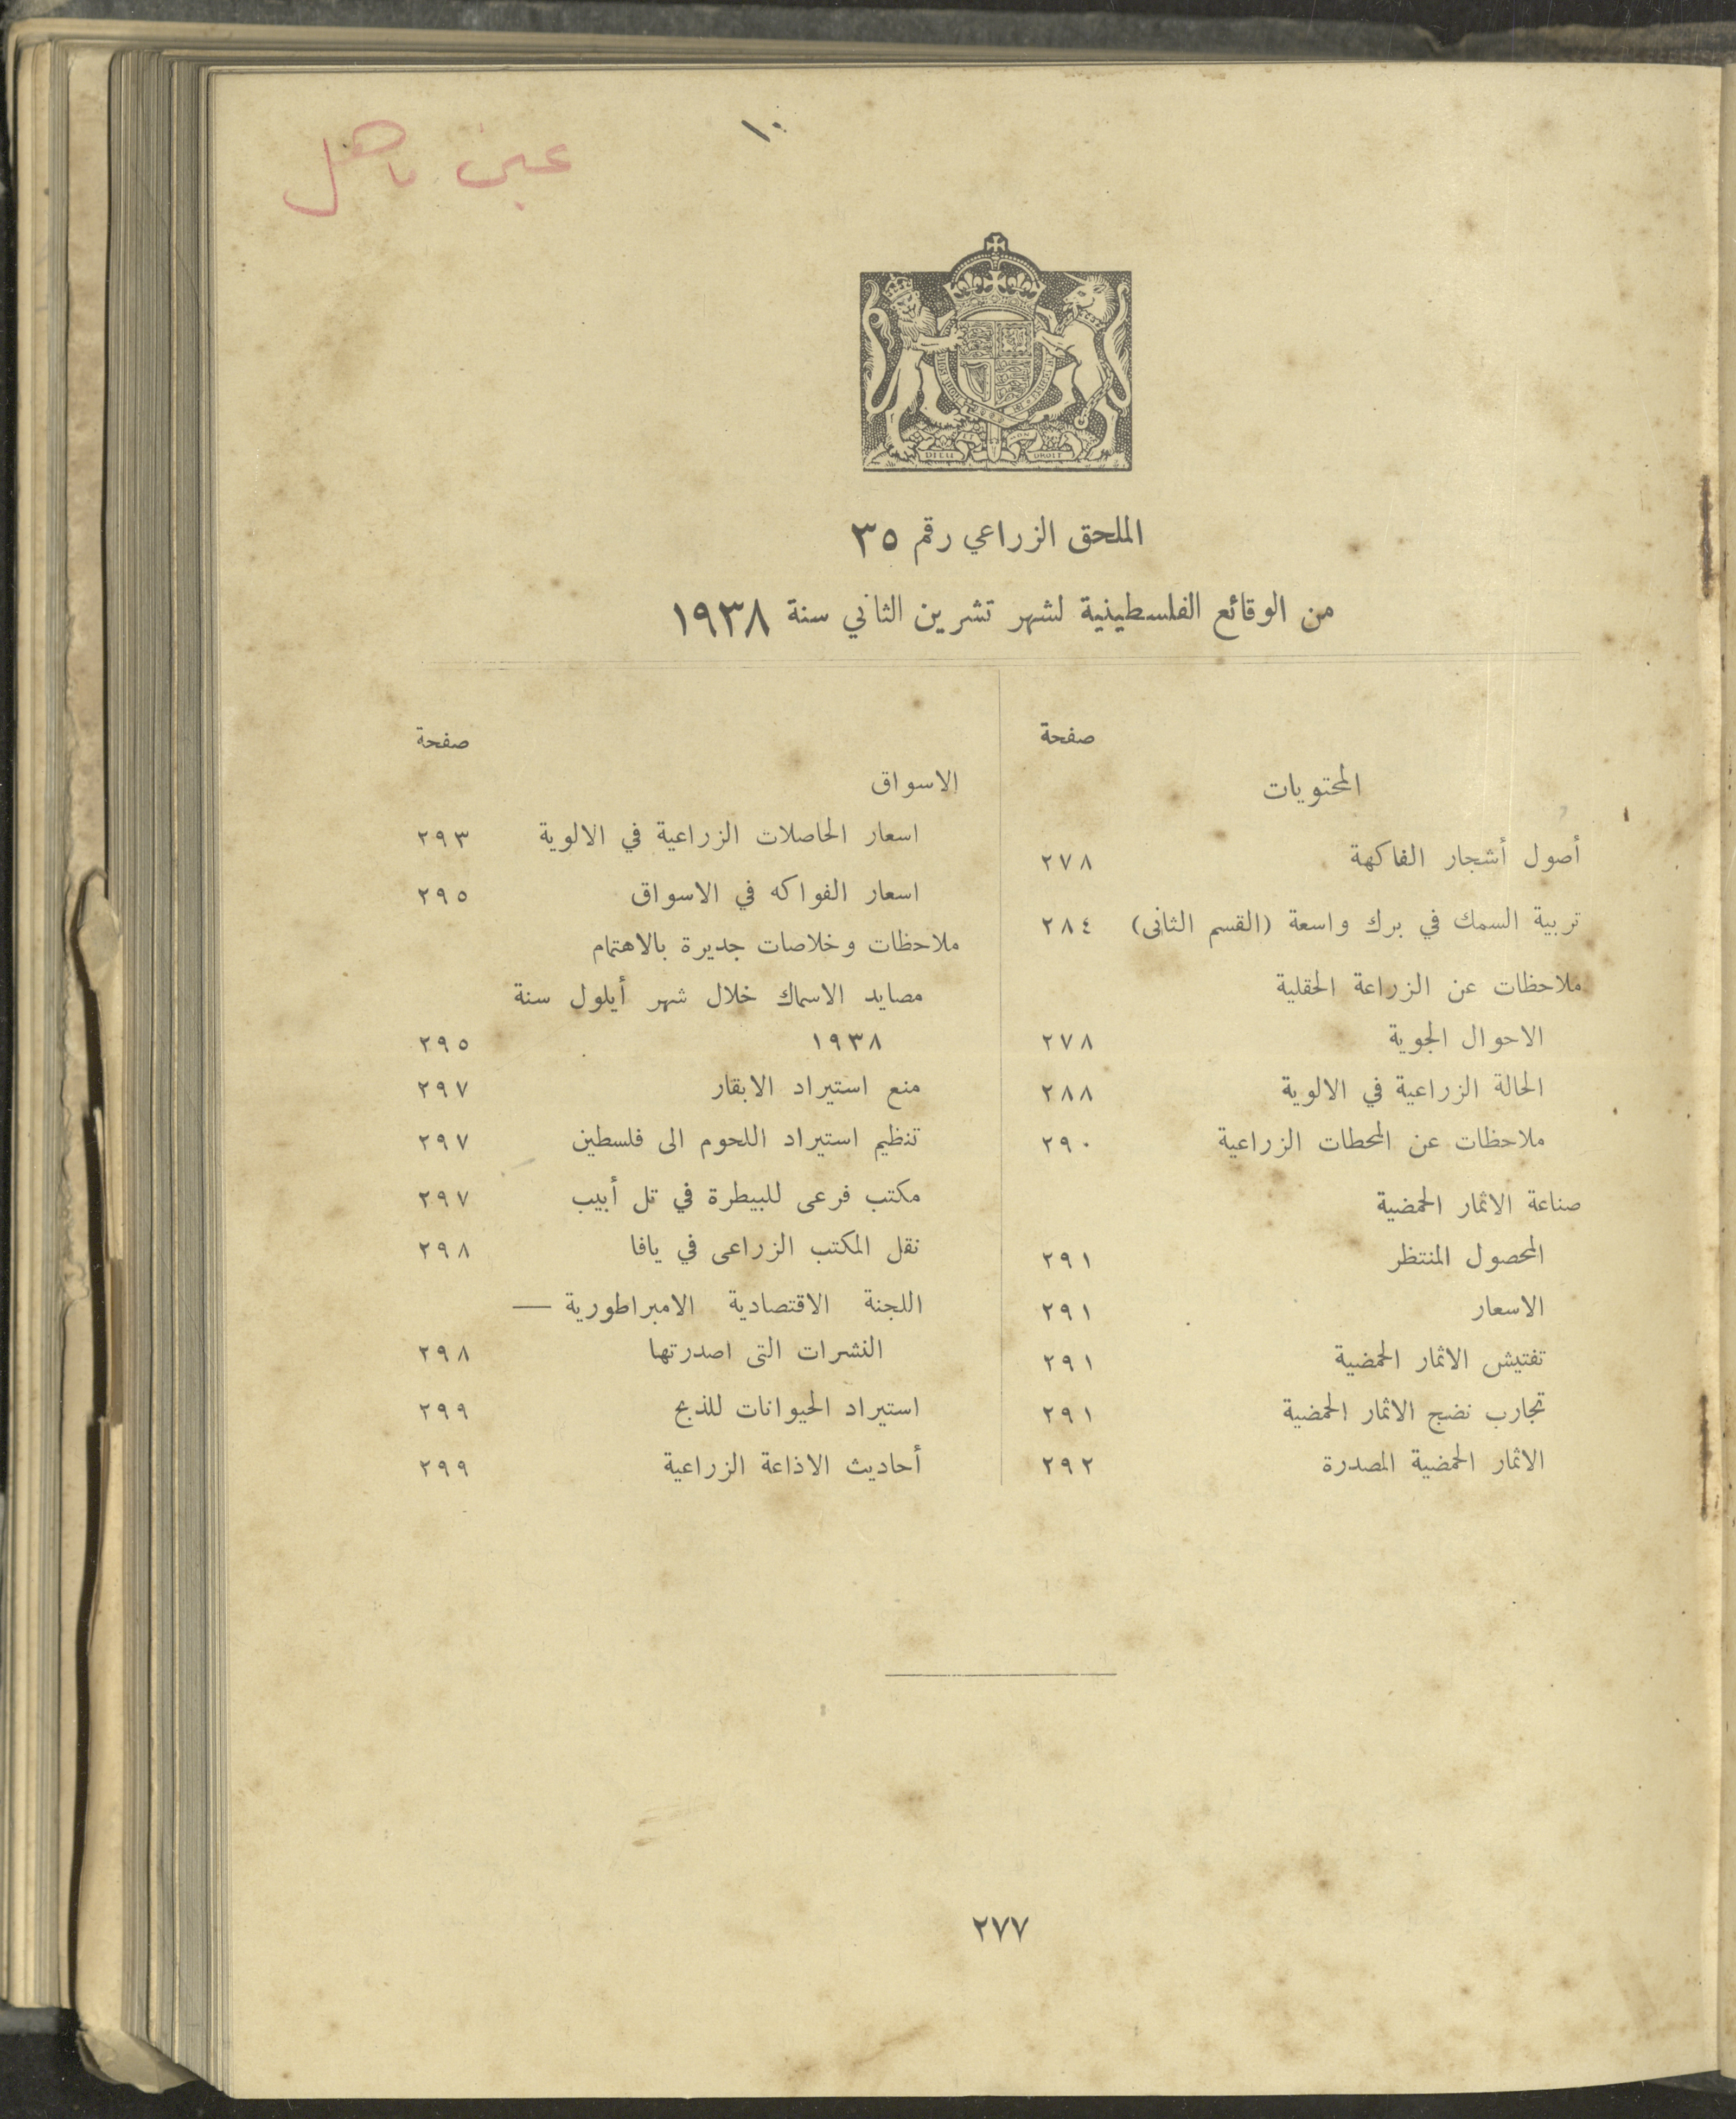 ١٠
عين ماهل
DIEU
DROIT
الملحق الزراعي رقم ٣٥
من الوقائع الفلسطينية لشهر تشرين الثاني سنة ١٩٣٨
صفحة
المحتويات
أصول أشجار الفاكهة ٢٧٨
تربية السمك في برك واسعة (القسم الثانى) ٢٨٤
ملاحظات عن الزراعة الحقلية
الاحوال الجوية ٢٧٨
الحالة الزراعية في الالوية ٢٨٨
ملاحظات عن المحطات الزراعية ٢٩٠
صناعة الاثمار الحمضية
المحصول المنتظر ٢٩١
الاسعار ٢٩١
تفتيش الاثمار الحمضية ٢٩١
تجارب نضج الاثمار الحمضية ٢٩١
الاثمار الحمضية المصدرة ٢٩٢
صفحة
الاسواق
اسعار الحاصلات الزراعية في الالوية ٢٩٣
اسعار الفواكه في الاسواق ٢٩٥
ملاحظات وخلاصات جديرة بالاهتمام
مصايد الاسماك خلال شهر أيلول سنة
١٩٣٨ ٢٩٥
منع استيراد الابقار ٢٩٧
تنظيم استيراد اللحوم الى فلسطين ٢٩٧
مكتب فرعى للبيطرة في تل أبيب ٢٩٧
نقل المكتب الزراعى في يافا ٢٩٨
اللجنة الاقتصادية الامبراطورية —
النشرات التى اصدرتها ٢٩٨
استيراد الحيوانات للذبح ٢٩٩
أحاديث الاذاعة الزراعية ٢٩٩
٢٧٧